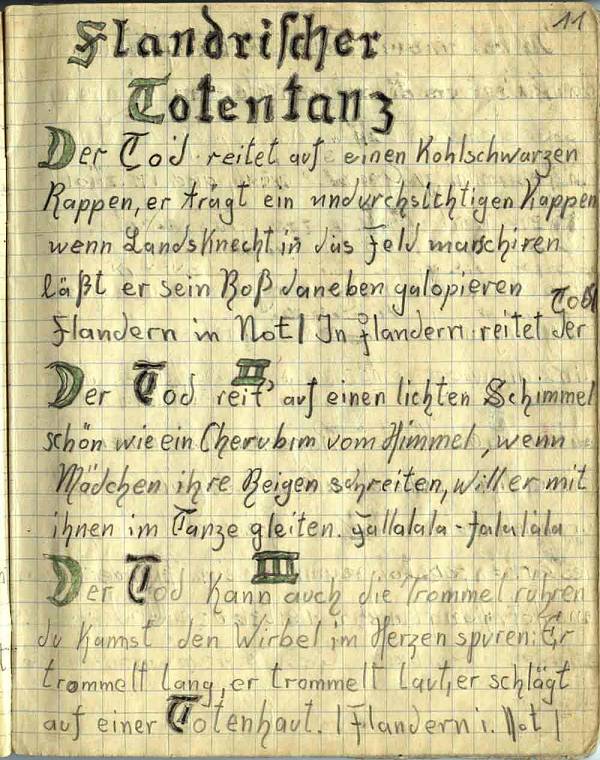 11
Flandrischer
Totentanz
Der Tod reitet auf einen Kohlschwarzen
Rappen, er trägt ein undurchsichtigen Kappen
wenn Landsknecht in das Feld marschiren
läßt er sein Roß daneben galopieren
Flandern in Not! In Flandern reitet der Tod!
II
Der Tod reit' auf einen lichten Schimmel
schön wie ein Cherubim vom Himmel, wenn
Mädchen ihre Reigen schreiten, will er mit
ihnen im Tanze gleiten. Fallalala - falalala
III
Der Tod kann auch die Trommel rühren
du kannst den Wirbel im Herzen spüren: Er
trommelt lang, er trommelt laut, er schlägt
auf einer Totenhaut. | Flandern i. Not |